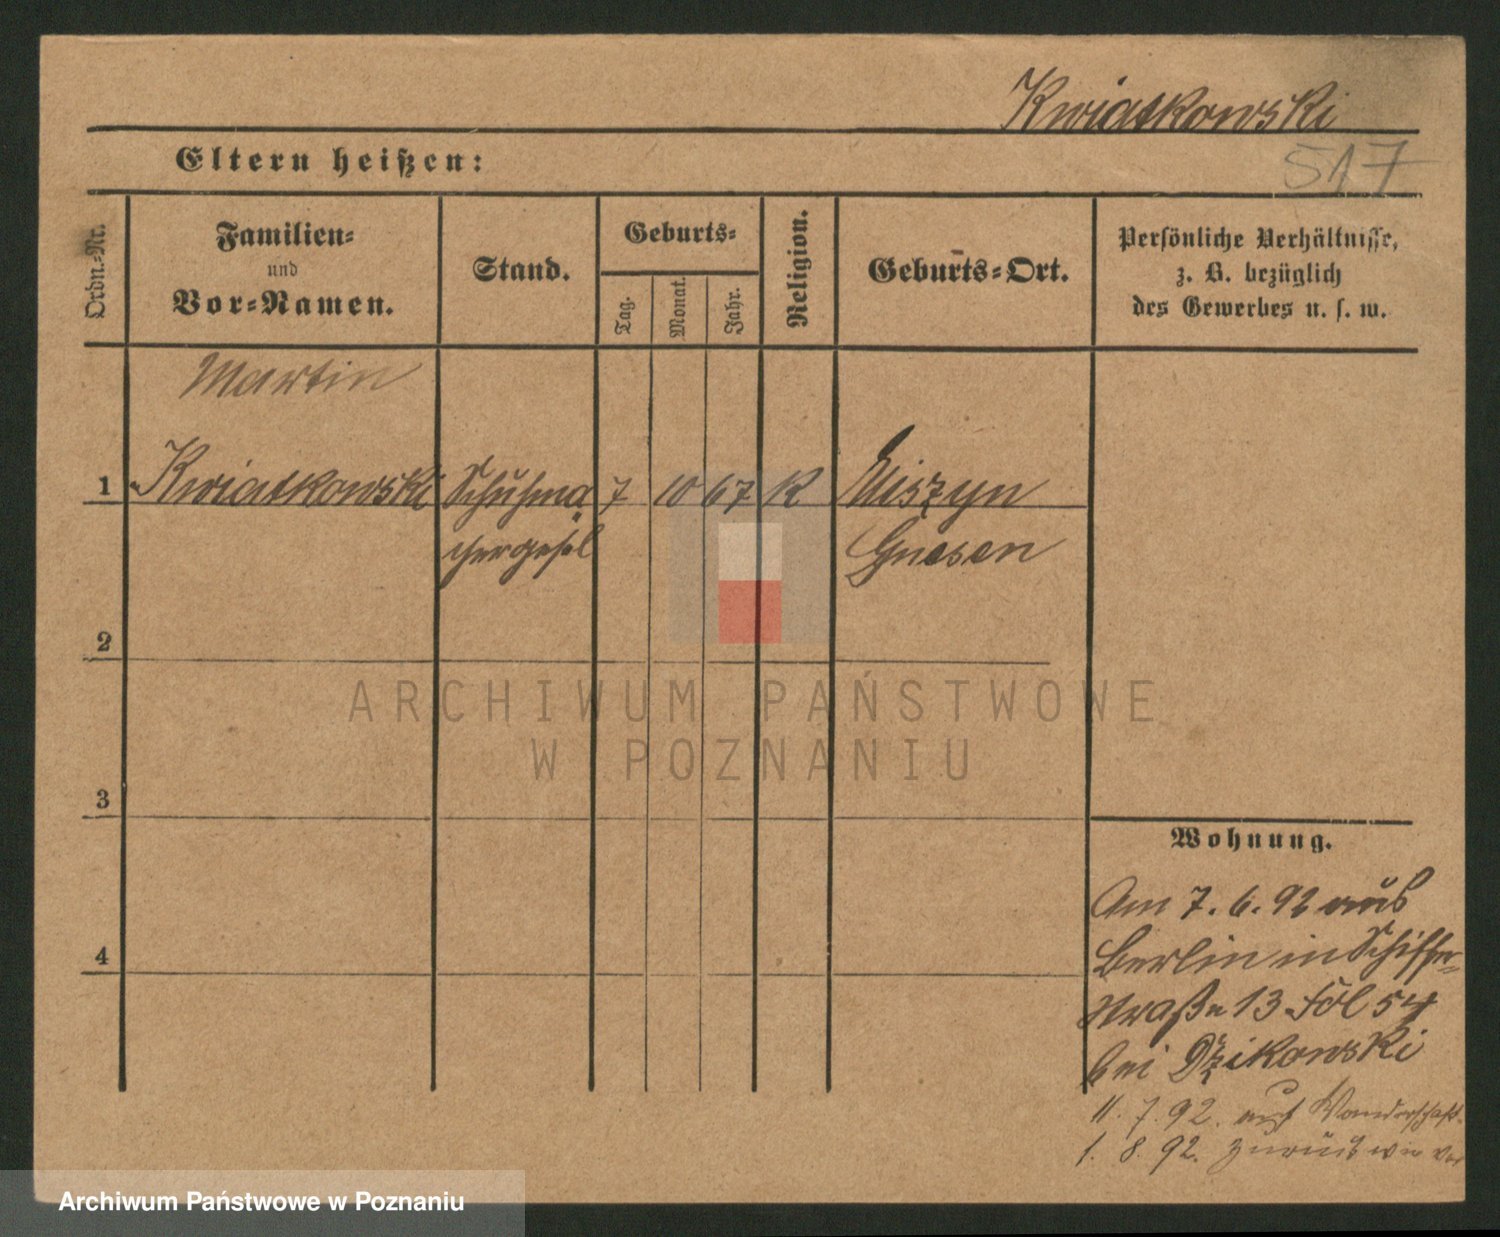 Kwiatkowski
Eltern heißen:
517
Ordn.-Nr.
Familien-
und
Vor-Namen.
Stand.
Geburts-
Tag.
Monat.
Jahr.
Religion.
Geburts-Ort.
Persönliche Verhältnisse,
z. B. bezüglich
des Gewerbes u. s. w.
Martin
1 Kwiatkowski Schuhma 7 10 67 K
chergesel Gnesen
2
3
4
Wohnung.
Am 7. 6. 92 aus
Berlin in Schiffer-
straße 13 Fol 54
bei Dzikowski
11. 7. 92. auf Wanderschaft.
1. 8. 92. zurück wie vor
ARCHIWUM PAŃSTWOWE
W POZNANIU
Archiwum Państwowe w Poznaniu